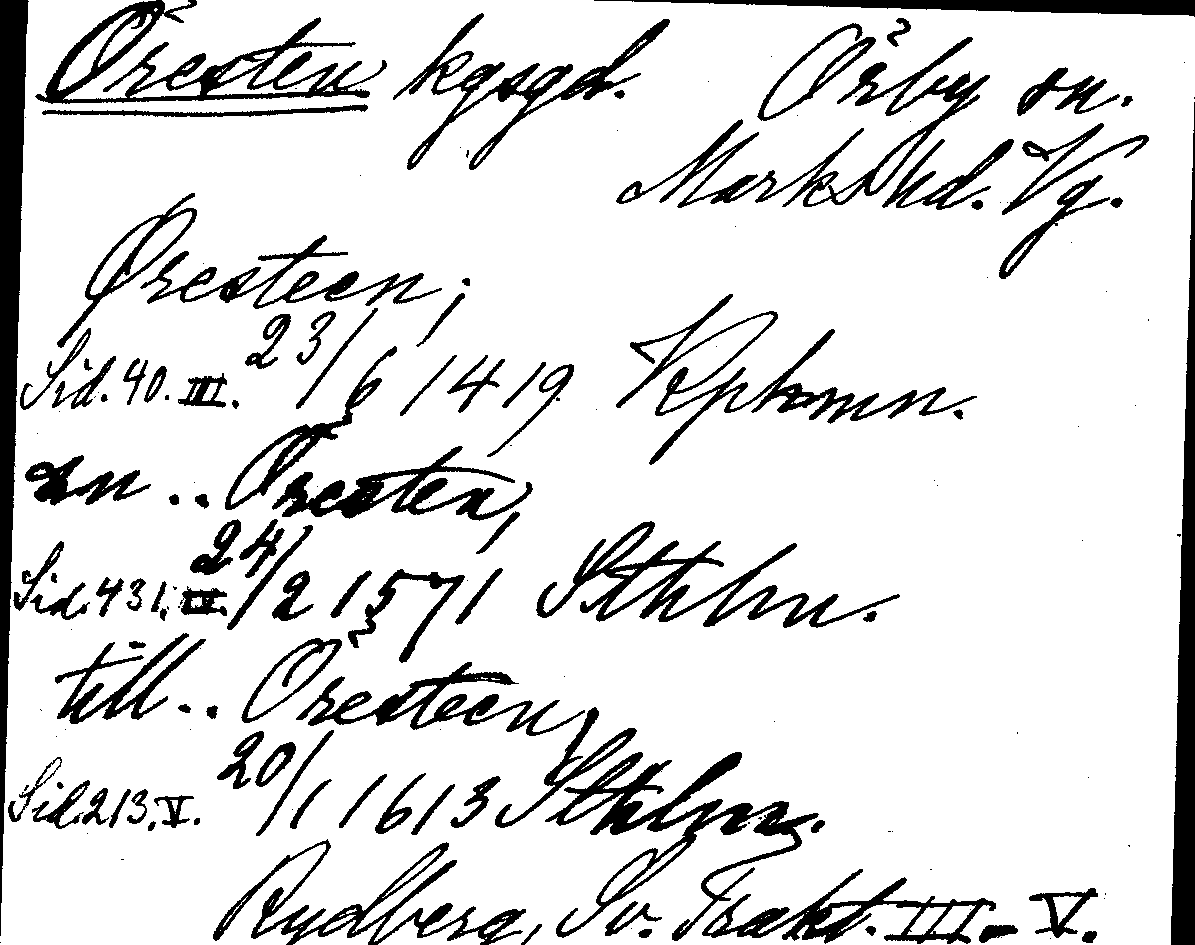 Öresten kgsgd. Örby sn.
Marks hd. Vg.
Øresteen;
Sid. 40. III. 23/6 1419 Kphmn.
an .. Öresten,
Sid. 431. IV. 24/2 1571 Sthlm.
till .. Öresteen,
Sid. 213. V. 20/1 1613 Sthlm.
Rydberg, Sv. Trakt. III - V.